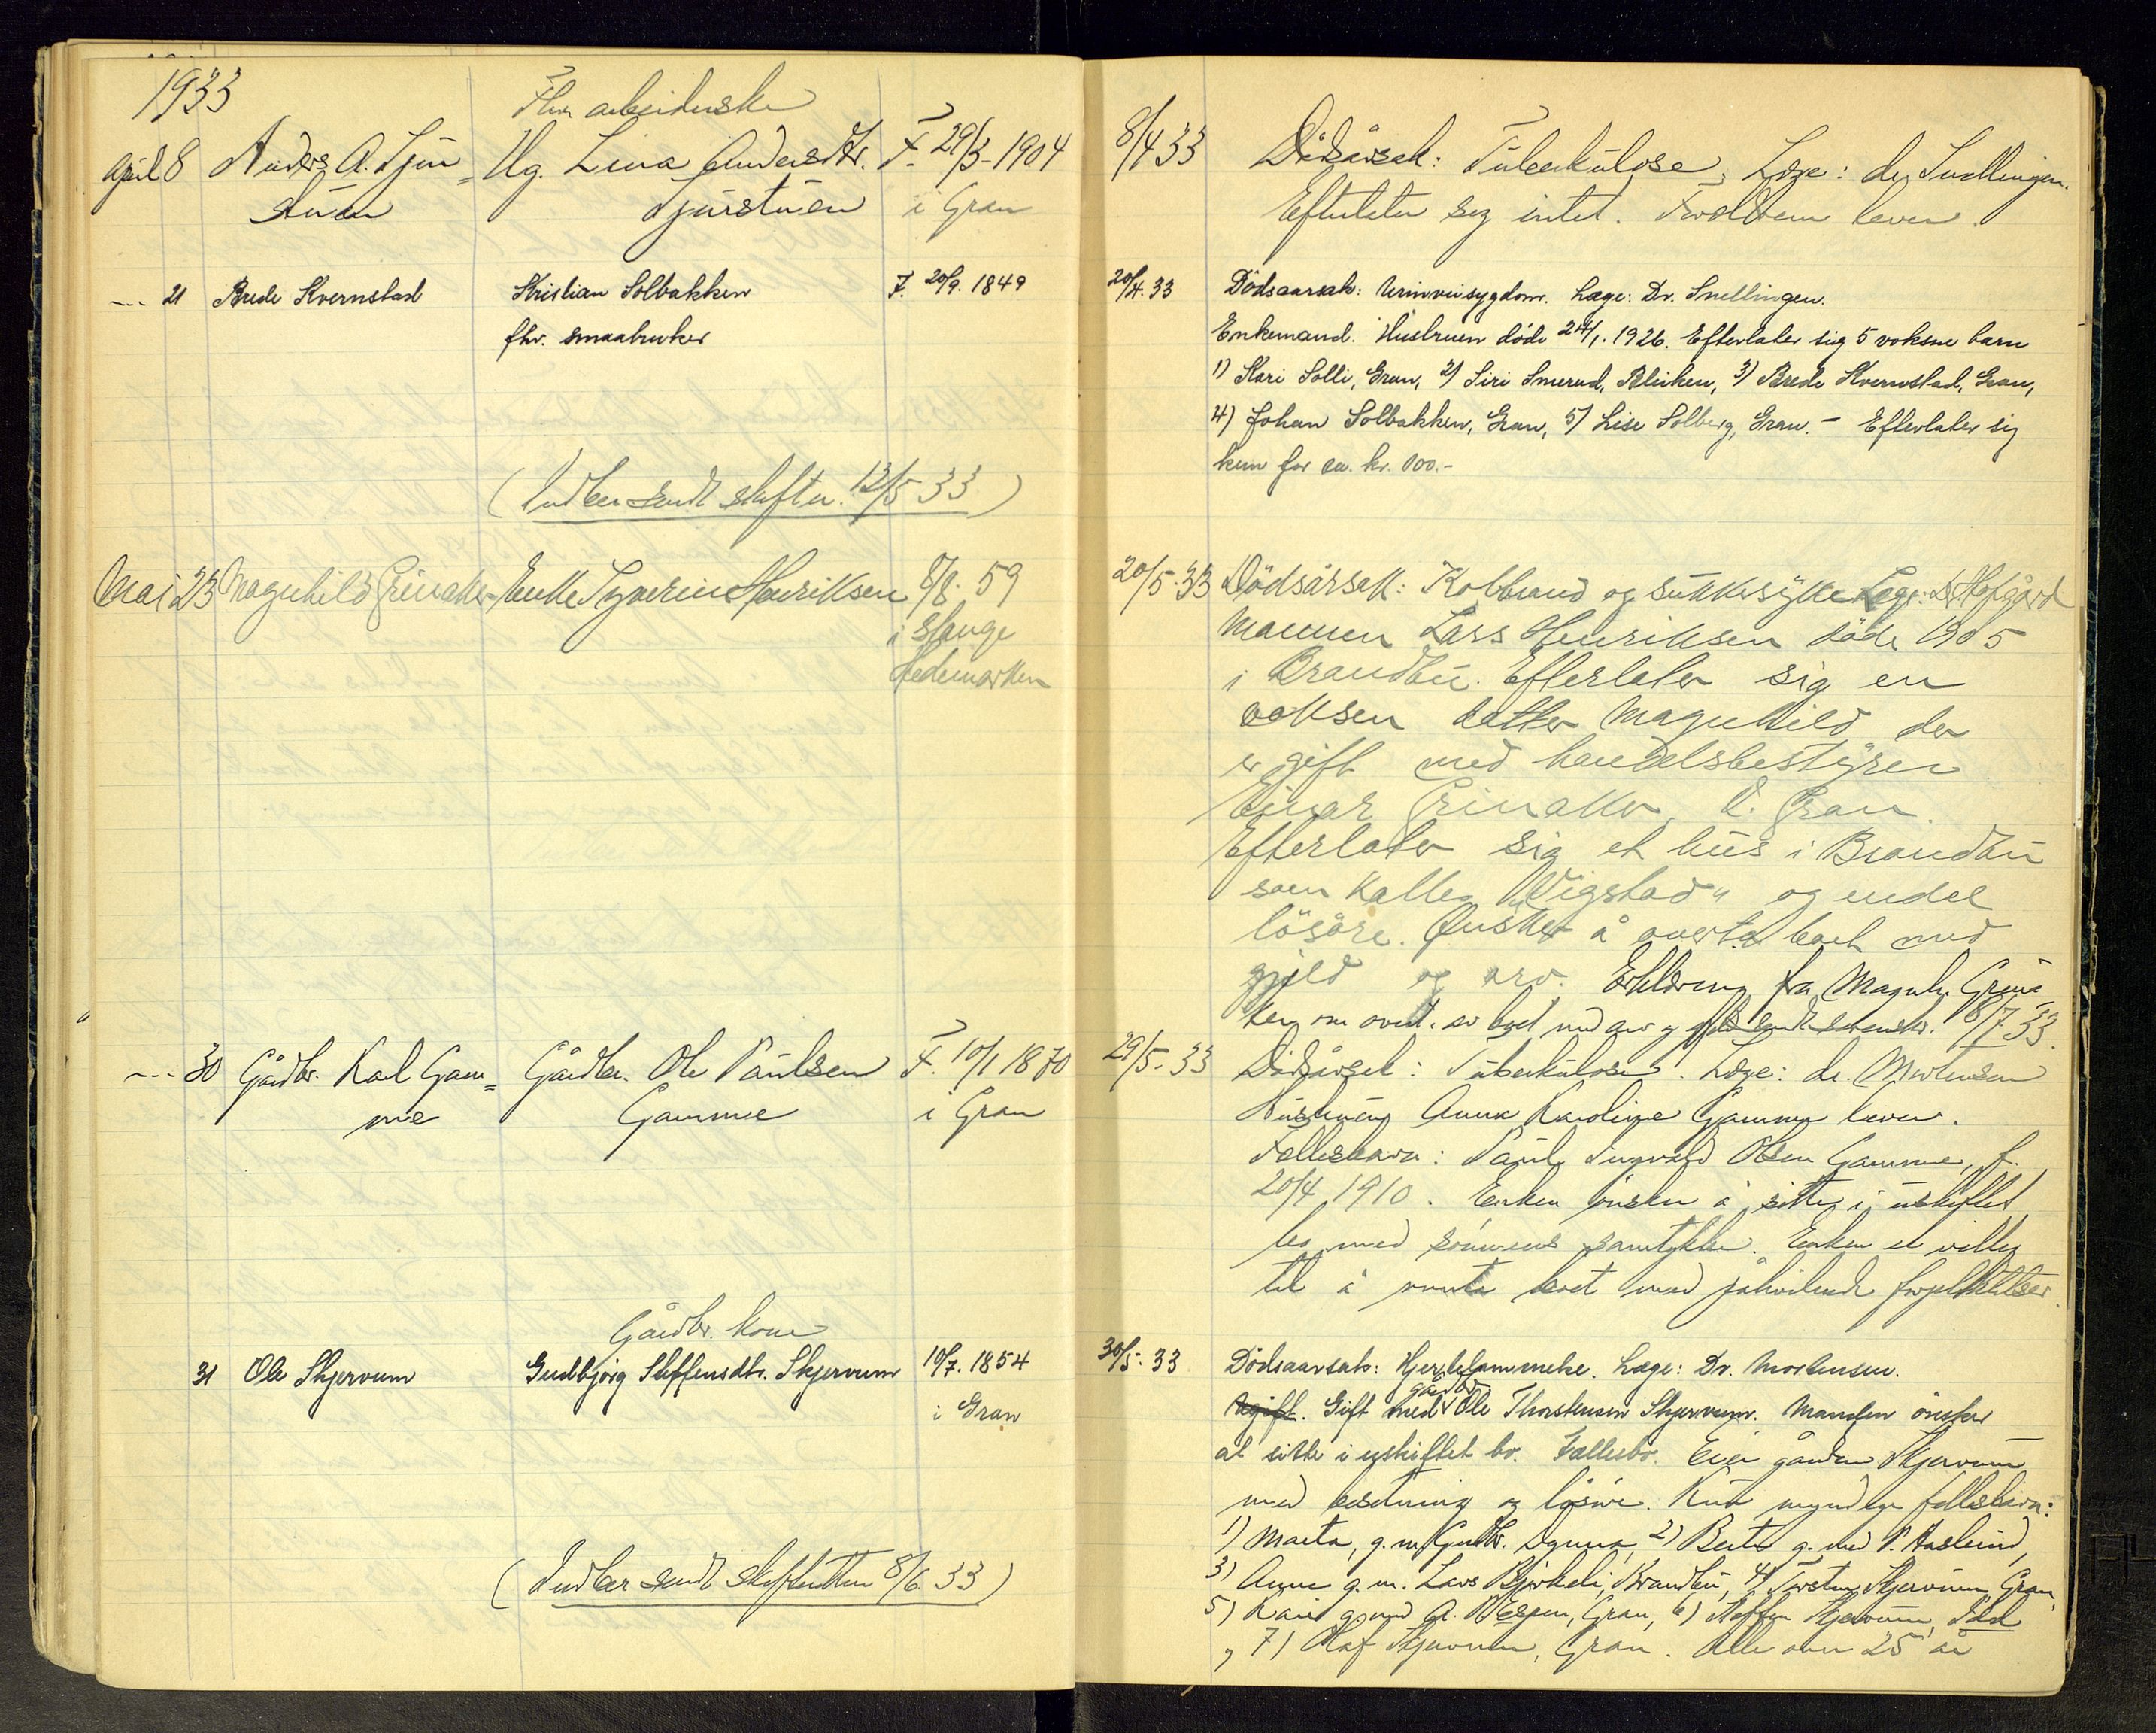 1933
Fhv. arbeiderske
april 8 Anders A. Tjür= Ug. Lina Andersdtr. F. 29/3-1904
stüen Tjürstüen i Gran
8/4 33 Dödsårsak: Tüberkülose. Læge: dr. Snellingen.
Efterlater sig intet. Foreldrene lever.
--- 21 Brede Kvernstad Kristian Solbakken F. 20/9. 1849
fhv. smaabruker
20/4. 33 Dödsaarsak: Urinveisygdom. Læge: Dr. Snellingen.
Enkemand. Hustruen döde 24/1. 1926. Efterlater sig 5 voksne barn
1) Kari Solli, Gran, 2) Siri Smerud, Bleiken, 3) Brede Kvernstad, Gran,
4) Johan Solbakken, Gran, 5) Lise Solberg, Gran. - Efterlater sig
kun for ca. kr. 100.-
(Indber. sendt skifter. 12/5 33)
Mai 23 Magnhild Grinaker Enke Syverine Henriksen 8/8. 59
i Stange
Hedemarken
20/5. 33 Dödsårsak: Kolbrand og sukkersyke Lege: Dr Hofgård
Mannen Lars Henriksen döde 1905
i Brandbu. Efterlater sig en
voksen datter Magnhild der
er gift med handelsbestyrer
Einar Grinaker, V. Gran.
Efterlater sig et hüs i Brandbu
som kalles "Vigstad" og endel
lösöre. Ønsker å overta boet med
gjeld og arv. Erklæring fra Magnh. Grina
ker om overt. av boet med arv og gjeld sendt sorenskr. 18/7 33.
--- 30 Gårdbr. Karl Gam= Gårdbr. Ole Paulsen F. 10/1 1870
me Gamme i Gran
29/5-33 Dödsårsak: Tüberkülose. Læge: dr. Mortensen
Hüstruen Anna Karoline Gamme lever.
Fellesbarn: Paul Ingvald Olsen Gamme, f.
20/4 1910. Enken önsker å sitte i üskiftet
bo med sönnens samtykke. Enken er villig
til å overta boet med påhvilende forpliktelser.
Gårdbr. kone
31 Ole Skjervum Gudbjörg Steffensdtr. Skjervum 10/7. 1854
i Gran
30/5. 33 Dödsaarsak: Hjertelammelse. Læge: Dr. Mortensen.
Ugift. Gift med gårdbr. Ole Thorstensen Skjervum. Manden önsker
at sitte i uskiftet bo. Fællesbo. Eier gården Skjervum
med besetning og lösöre. Kun myndige fellesbarn:
1) Marta, g. m. Gudbr. Dynna, 2) Berte g. med P. Haslund,
3) Anne g. m. Lars Bjerkeli, Brandbu, 4) Torsten Skjervum, Gran,
5) Kari g. med A. Espen, Gran, 6) Steffen Skjervum,
, 7) Olaf Skjervum, Gran. Alle over 25 år
(Indber. sendt skifteretten 8/6 33)